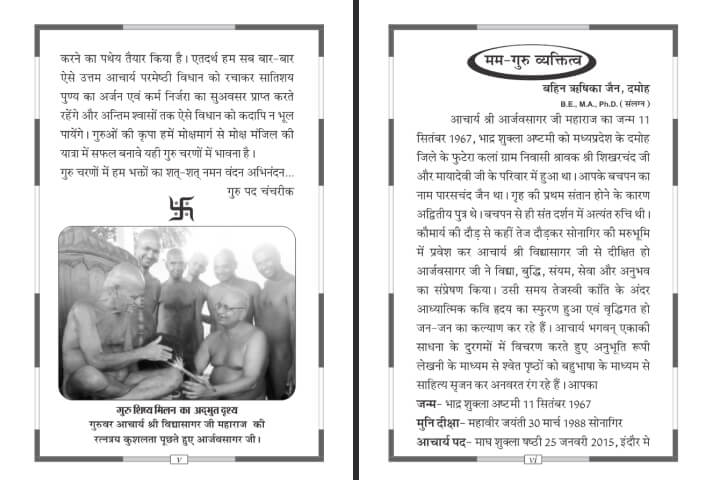 करने का पथेय तैयार किया है। एतदर्थ हम सब बार-बार
ऐसे उत्तम आचार्य परमेष्ठी विधान को रचाकर सातिशय
पुण्य का अर्जन एवं कर्म निर्जरा का सुअवसर प्राप्त करते
रहेंगे और अन्तिम श्वासों तक ऐसे विधान को कदापि न भूल
पायेंगे। गुरुओं की कृपा हमें मोक्षमार्ग से मोक्ष मंजिल की
यात्रा में सफल बनावे यही गुरु चरणों में भावना है।
गुरु चरणों में हम भक्तों का शत्-शत् नमन वंदन अभिनंदन...
गुरु पद चंचरीक
卐
गुरु शिष्य मिलन का अद्भुत दृश्य
गुरुवर आचार्य श्री विद्यासागर जी महाराज की
रत्नत्रय कुशलता पूछते हुए आर्जवसागर जी।
v
मम-गुरु व्यक्तित्व
बहिन ऋषिका जैन, दमोह
B.E., M.A., Ph.D. ( संलग्न )
आचार्य श्री आर्जवसागर जी महाराज का जन्म 11
सितंबर 1967, भाद्र शुक्ला अष्टमी को मध्यप्रदेश के दमोह
जिले के फुटेरा कलां ग्राम निवासी श्रावक श्री शिखरचंद जी
और मायादेवी जी के परिवार में हुआ था। आपके बचपन का
नाम पारसचंद जैन था। गृह की प्रथम संतान होने के कारण
अद्वितीय पुत्र थे। बचपन से ही संत दर्शन में अत्यंत रुचि थी।
कौमार्य की दौड़ से कहीं तेज दौड़कर सोनागिर की मरुभूमि
में प्रवेश कर आचार्य श्री विद्यासागर जी से दीक्षित हो
आर्जवसागर जी ने विद्या, बुद्धि, संयम, सेवा और अनुभव
का संप्रेषण किया। उसी समय तेजस्वी कांति के अंदर
आध्यात्मिक कवि हृदय का स्फुरण हुआ एवं वृद्धिगत हो
जन-जन का कल्याण कर रहे हैं। आचार्य भगवन् एकाकी
साधना के दुरगमों में विचरण करते हुए अनुभूति रूपी
लेखनी के माध्यम से श्वेत पृष्ठों को बहुभाषा के माध्यम से
साहित्य सृजन कर अनवरत रंग रहे हैं। आपका
जन्म- भाद्र शुक्ला अष्टमी 11 सितंबर 1967
मुनि दीक्षा- महावीर जयंती 30 मार्च 1988 सोनागिर
आचार्य पद- माघ शुक्ला षष्ठी 25 जनवरी 2015, इंदौर मे
vi